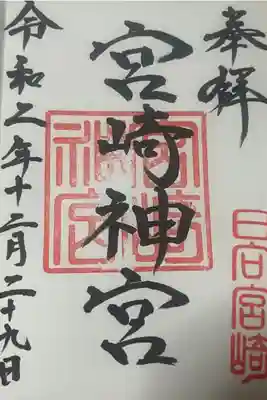 奉拝
日向宮崎
宮崎神宮
宮崎神宮
令和元年十二月二十九日